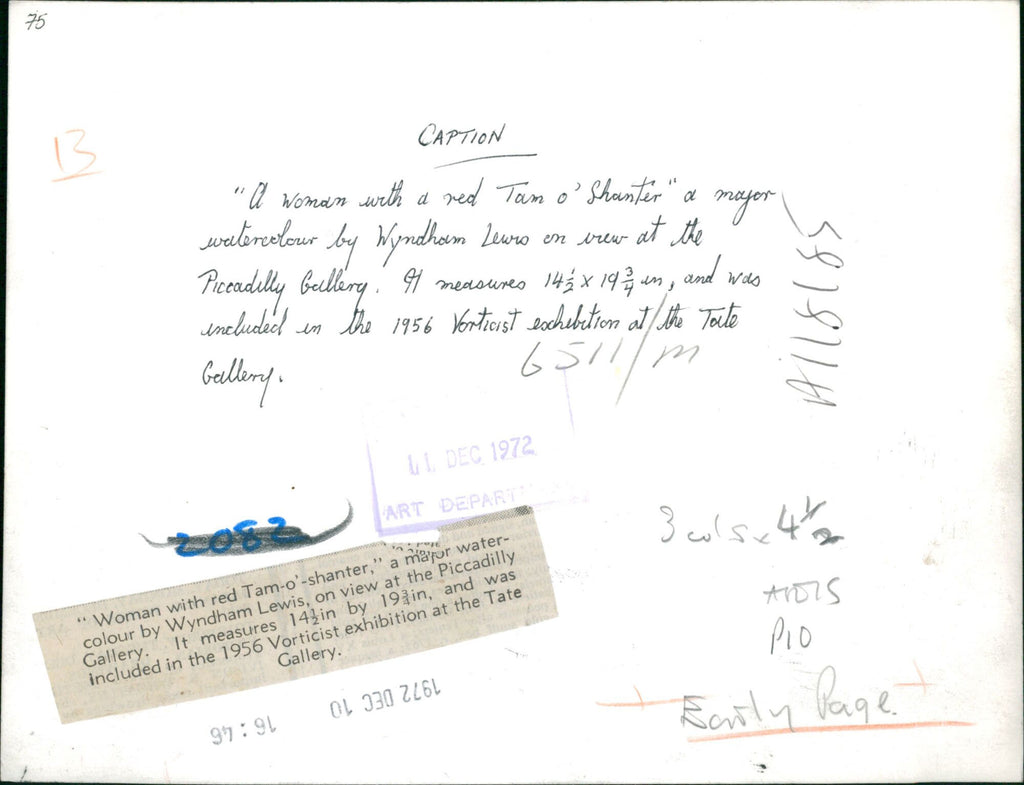 75
13
CAPTION
"A woman with a red Tam o' Shanter" a major
watercolour by Wyndham Lewis on view at the
Piccadilly Gallery. It measures 14½ x 19¾ in, and was
included in the 1956 Vorticist exhibition at the Tate
Gallery.
6511/m
A118185
11 DEC 1972
ART DEPART
2082
3 cols x 4½
"Woman with red Tam-o'-shanter," a major water-
colour by Wyndham Lewis, on view at the Piccadilly
Gallery. It measures 14½in by 19¾in, and was
included in the 1956 Vorticist exhibition at the Tate
Gallery.
ARTS
P10
Early Page.
1972 DEC 10
16:46